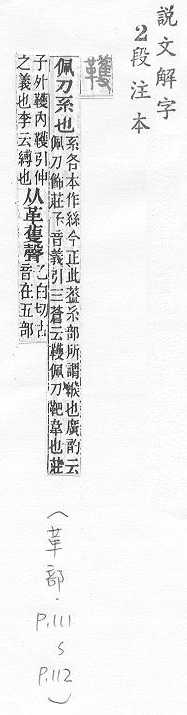 説文解字
2段注本
韄
佩刀系也
系各本作絲今正此葢糸部所謂緱也廣韵云
佩刀飾莊子音義引三蒼云韄佩刀靶韋也莊
子外韄內韄引伸
之義也李云縛也
从革蒦聲
乙白切古
音在五部
(革部.
P.111
~
P.112)